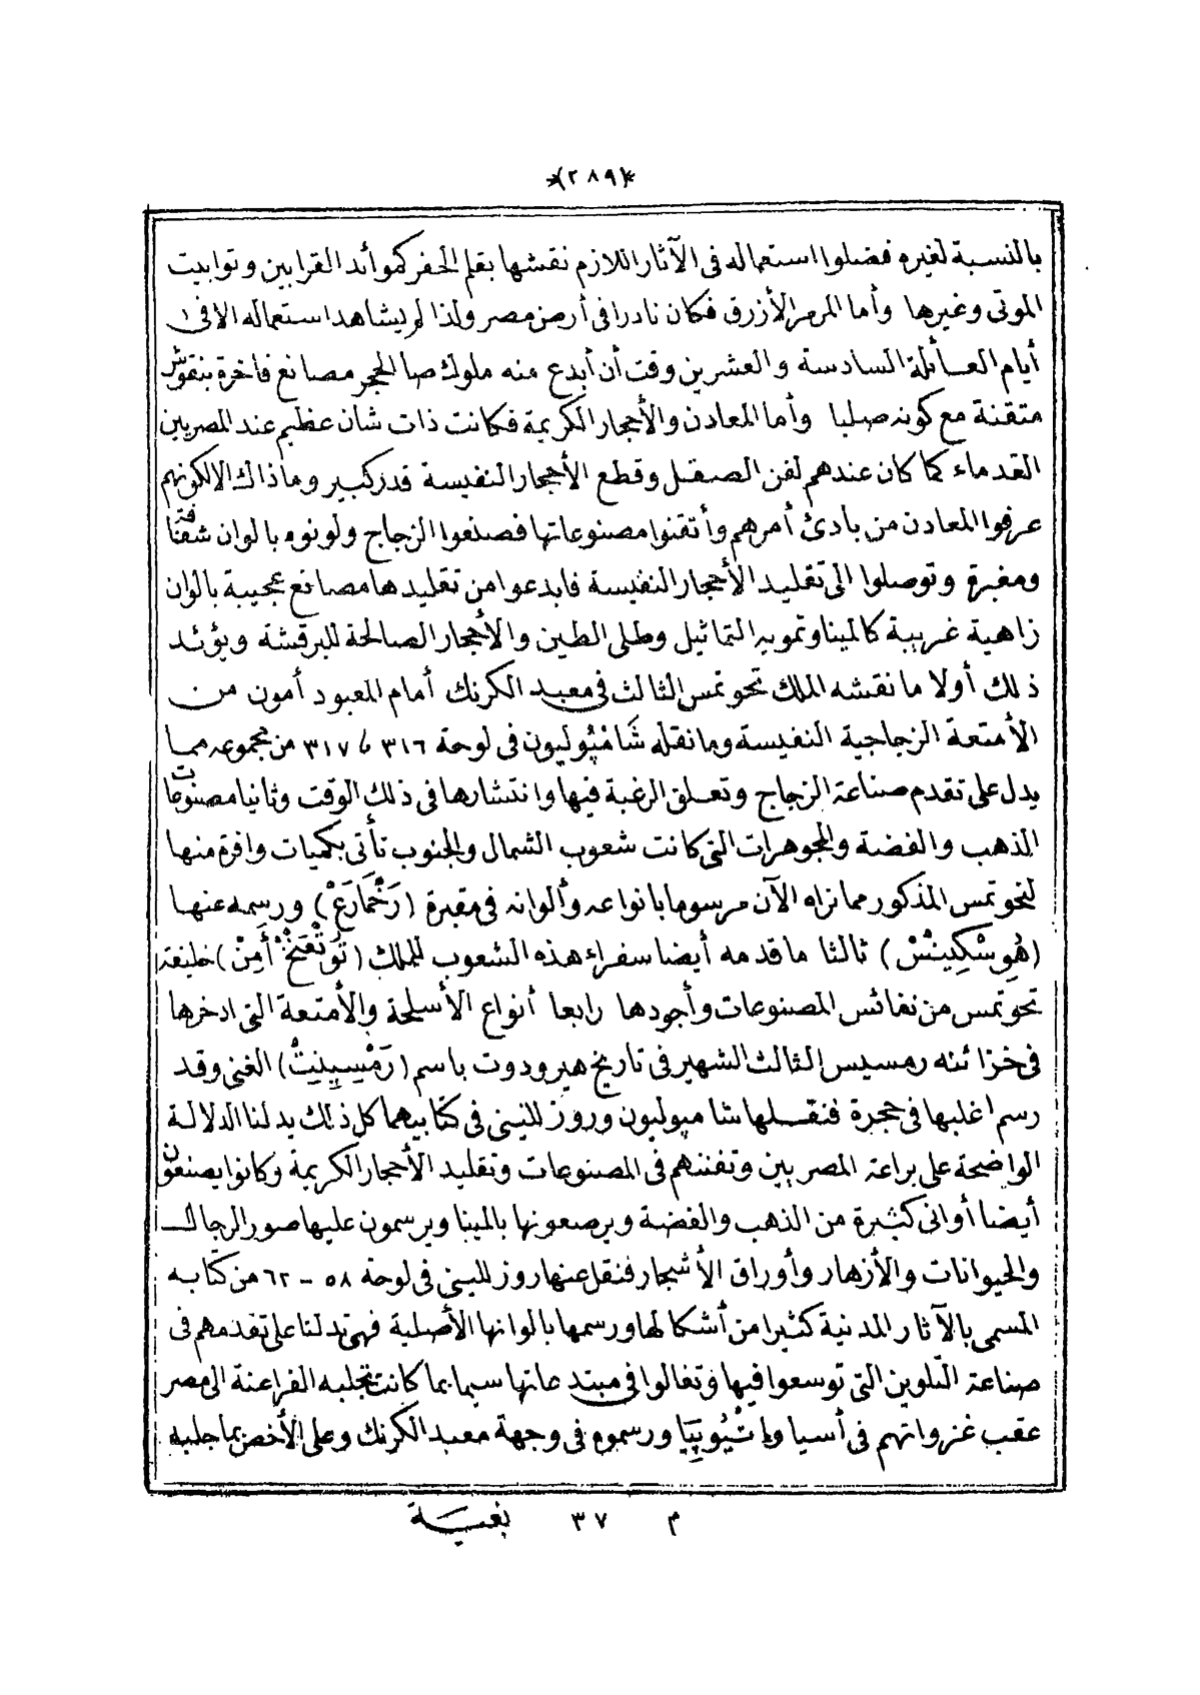 *(٢٨٩)*
بالنسبة لغيره ففضلوا استعماله فى الآثار اللازم نقشها بقلم الحفر كموائد القرابين وتوابيت
الموتى وغيرها وأما المرمر الأزرق فكان نادرا فى أرض مصر ولذا لم يشاهد استعماله الا فى
أيام العائلة السادسة والعشرين وقت أن أبدع منه ملوك صا الحجر مصانع فاخرة بنقوش
متقنة مع كونه صلبا وأما المعادن والأحجار الكريمة فكانت ذات شان عظيم عند المصريين
القدماء كما كان عندهم لفن الصقل وقطع الأحجار النفيسة قدر كبير وما ذاك الا لكونهم
عرفوا المعادن من بادئ أمرهم وأتقنوا مصنوعاتها فصنعوا الزجاج ولونوه بالوان شفافة
ومغبرة وتوصلوا الى تقليد الأحجار النفيسة فابدعوا من تقليدها مصانع عجيبة بالوان
زاهية غريبة كالمينا وتمويه التماثيل وطلى الطين والأحجار الصالحة للبرقشة ويؤيد
ذلك أولا ما نقشه الملك تحوتمس الثالث فى معبد الكرنك أمام المعبود أمون من
الأمتعة الزجاجية النفيسة وما نقله شَامْپُوليون فى لوحة ٣١٦ ، ٣١٧ من مجموعه مما
يدل على تقدم صناعة الزجاج وتعلق الرغبة فيها وانتشارها فى ذلك الوقت وثانيا مصنوعات
الذهب والفضة والمجوهرات التى كانت شعوب الشمال والجنوب تأتى بكميات وافرة منها
لتحوتمس المذكور مما نراه الآن مرسوما بانواعه وألوانه فى مقبرة (رَخْمَارَعْ) ورسمه عنها
(هُوِسْكِينْسْ) ثالثا ما قدمه أيضا سفراء هذه الشعوب للملك (تَوْتْعَنْخْ أَمِنْ) خليفة
تحوتمس من نفائس المصنوعات وأجودها رابعا أنواع الأسلحة والأمتعة التى ادخرها
فى خزائنه رمسيس الثالث الشهير فى تاريخ هيرودوت باسم (رَمْسِپِينِيتْ) الغنى وقد
رسم اغلبها فى حجرة فنقلها شامپوليون وروزللينى فى كتابيهما كل ذلك يدلنا الدلالة
الواضحة على براعة المصريين وتفننهم فى المصنوعات وتقليد الأحجار الكريمة وكانوا يصنعون
أيضا أوانى كثيرة من الذهب والفضة ويرصعونها بالمينا ويرسمون عليها صور الرجال
والحيوانات والأزهار وأوراق الأشجار فنقل عنها روزللينى فى لوحة ٥٨ – ٦٢ من كتابه
المسمى بالآثار المدنية كثيرا من أشكالها ورسمها بالوانها الأصلية فهى تدلنا على تقدمهم فى
صناعة التلوين التى توسعوا فيها وتغالوا فى مبتدعاتها سيما بما كانت تجلبه الفراعنة الى مصر
عقب غزواتهم فى أسيا وإتْيُوپْيَا ورسموه فى وجهة معبد الكرنك وعلى الأخص بما جلبه
م ٣٧ بغية